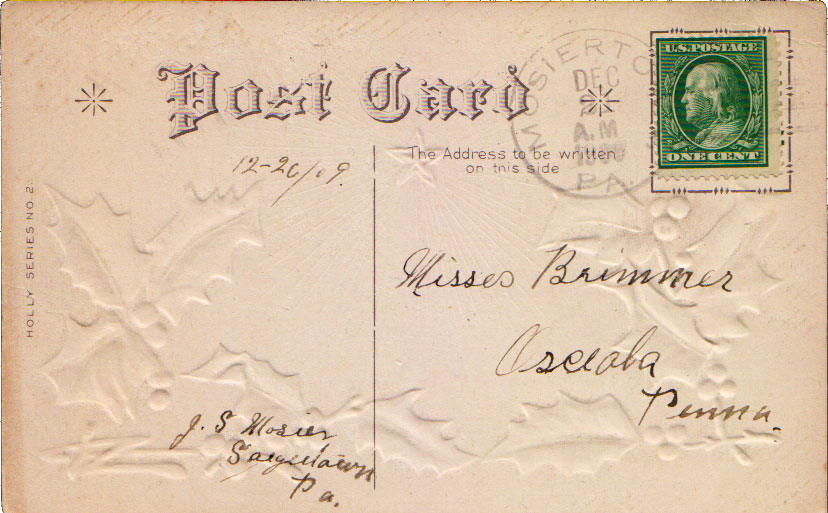 Post Card
MOSIERTO
DEC
2
A.M
PA.
U.S. POSTAGE
ONE CENT
The Address to be written
on this side
12-26/09.
HOLLY SERIES NO. 2.
Misses Brimmer
Osceola
Penna.
J. S Mosier,
Saegertown
Pa.